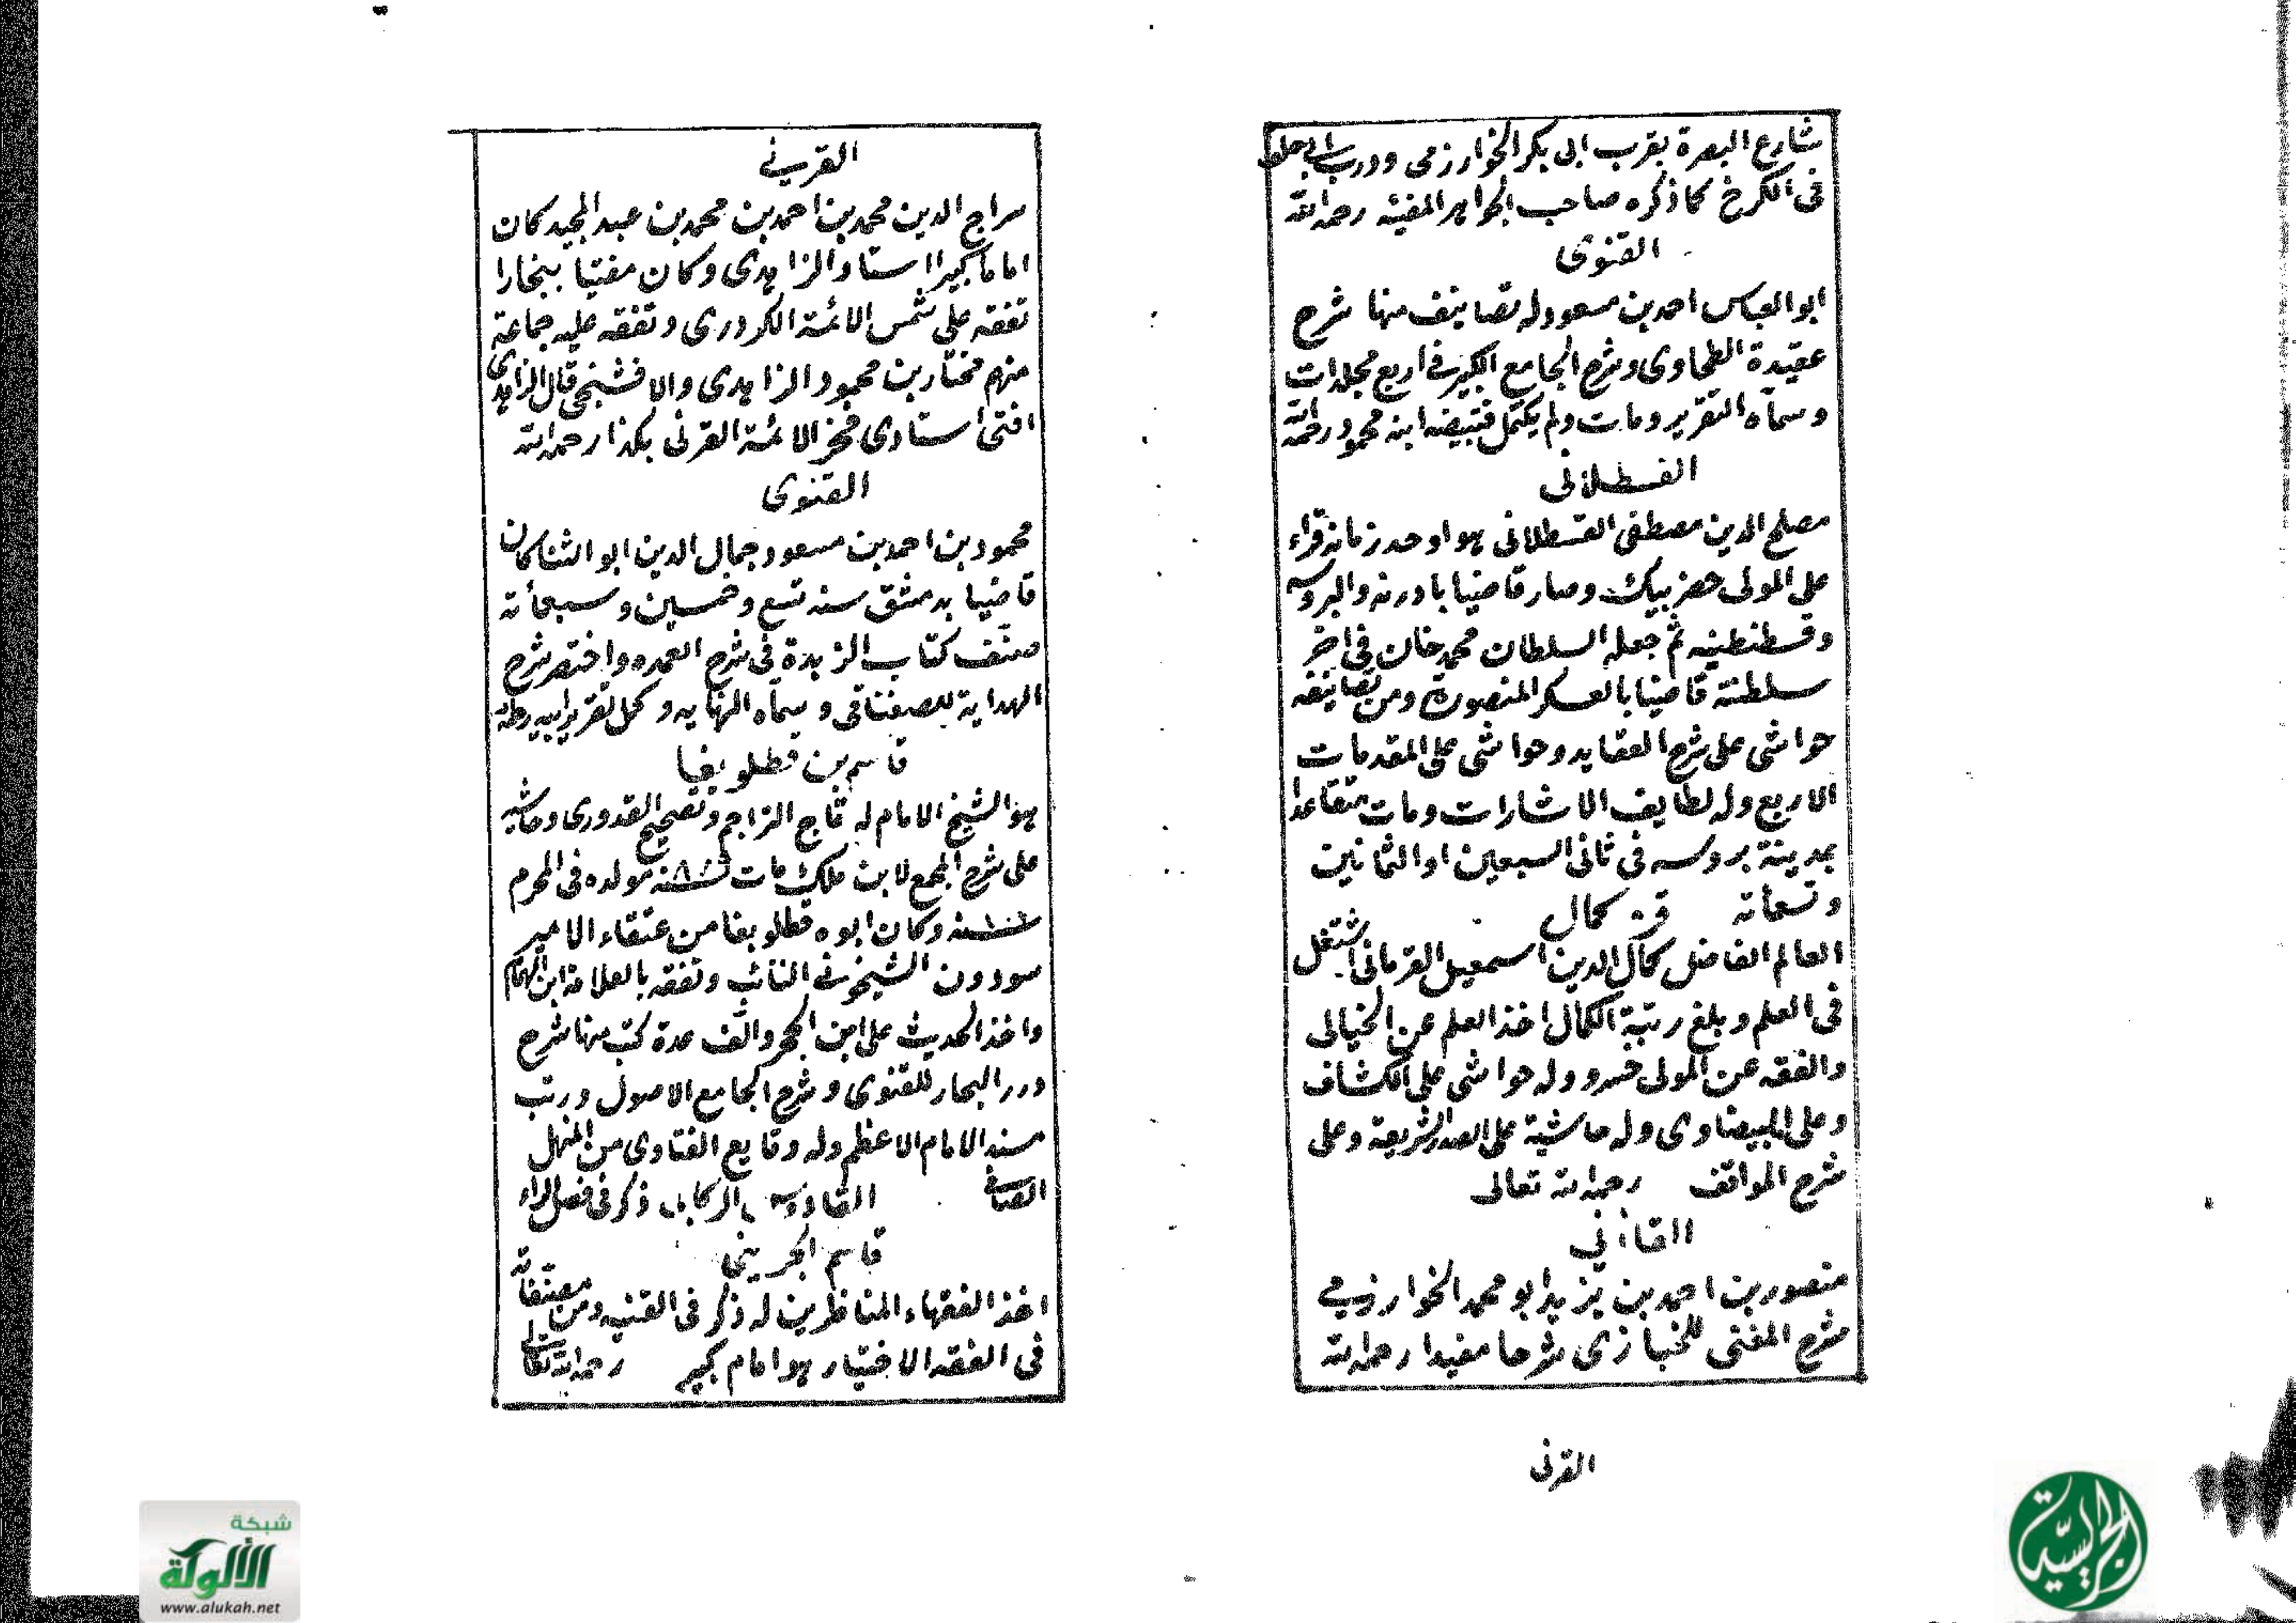 شارع البصرة بقرب ابى بكر الخوارزمى ودرب
فى الكرخ كما ذكره صاحب الجواهر المضيئه رحمه الله
القنوى
ابو العباس احمد بن مسعود له تصانيف منها شرح
عقيدة الطحاوى وشرح الجامع الكبير فى اربع مجلدات
وسماه التقرير ومات ولم يكمل فتبيضه ابنه محمود رحمه الله
القسطلانى
مصلح الدين مصطفى القسطلانى هو اوحد زمانه قراء
على المولى خضر بيك وصار قاضيا بادرنه والبروسه
وقسطنطينيه ثم جعله السلطان محمد خان فى اخر
سلطنته قاضيا بالعسكر المنصورة ومن تصانيفه
حواشى على شرح العقايد وحواشى على المقدمات
الاربع وله لطايف الاشارات ومات متقاعدا
بمدينة بروسه فى ثانى السبعين او الثمانين
وتسمائه قره كمال
العالم الفاضل كمال الدين اسمعيل القرمانى اشتغل
فى العلم وبلغ رتبة الكمال اخذ العلم عن الخيالى
والفقه عن المولى خسرو وله حواشى على الكشاف
وعلى البيضاوى وله حاشية على الصدر الشريعة وعلى
شرح المواقف رحمه الله تعالى
القاأنى
منصور بن احمد بن يزيد ابو محمد الخوارزمى
شرح المغنى للخبازى شرحا مفيدا رحمه الله
القرنى
القرينى
سراج الدين محمد بن احمد بن محمد بن عبد المجيد كان
اماما كبيرا استاد الزاهدى وكان مفتيا ببخارا
تفقه على شمس الائمة الكردرى وتفقه عليه جماعة
منهم مختار بن محمود الزاهدى والافشنجى قال الزاهدى
افتى استادى فخر الائمة القرنى بكذا رحمه الله
القنوى
محمود بن احمد بن مسعود جمال الدين ابو الثنا كان
قاضيا بدمشق سنه تسع وخمسين وسبعمأته
صنف كتاب الزبدة فى شرح العمده واختصر شرح
الهداية للصغناقى وسماه النهايه وكمل تقرير ابيه رحمه الله
قاسم بن قطلوبغا
هو الشيخ الامام له تاج التراجم وتصحيح القدورى وحاشيه
على شرح المجمع لابن ملك مات سنه مولده فى المحرم
سنه وكان ابوه قطلوبغا من عتقاء الامير
سودون الشيخونى النائب وتفقه بالعلامة ابن الهمام
واخذ الحديث على ابن الحجر والف عدة كتب منها شرح
درر البحار للقنوى وشرح الجامع الاصول ورتب
مسند الامام الاعظم وله وقايع الفتاوى من المنهل
الصافى القادوسه الركابى ذكر فى فصل الراء
قاسم الجرينى
اخذ الفقهاء المناظرين له ذكر فى القنيه ومن مصنفاته
فى الفقه الاختيار هو امام كبير رحمه الله تعالى
شبكة
الألوكة
www.alukah.net